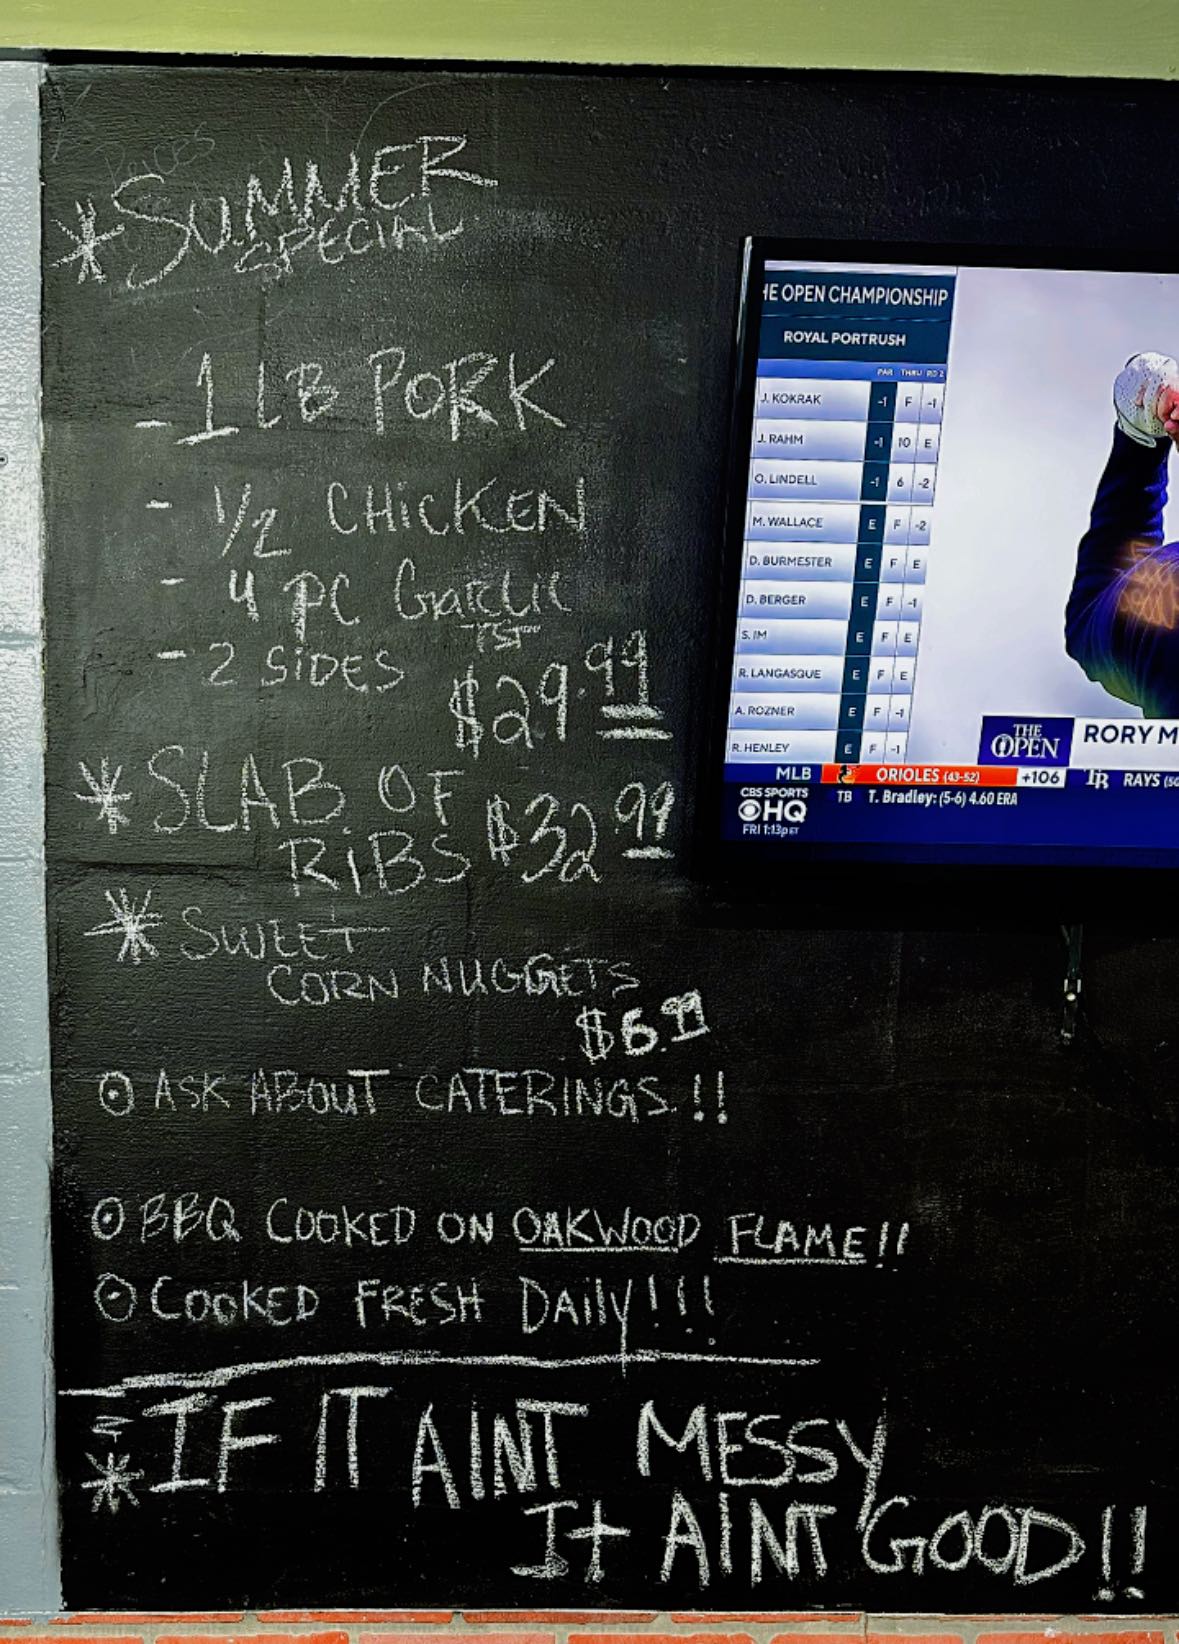 *SUMMER
SPECIAL
- 1 LB PORK
- 1/2 CHICKEN
- 4 PC GARLIC
TST
- 2 SIDES $29.99
* SLAB OF
RIBS $32.99
* SWEET
CORN NUGGETS
$6.99
⊙ ASK ABOUT CATERINGS!!
⊙ BBQ COOKED ON OAKWOOD FLAME!!
⊙ COOKED FRESH DAily!!!
* IF IT AINT MESSY
It AINT GOOD!!
HE OPEN CHAMPIONSHIP
ROYAL PORTRUSH
PAR THRU RD 2
J. KOKRAK -1 F -1
J. RAHM -1 10 E
O. LINDELL -1 6 -2
M. WALLACE E F -2
D. BURMESTER E F E
D. BERGER E F -1
S. IM E F E
R. LANGASQUE E F E
A. ROZNER E F -1
R. HENLEY E F -1
THE
OPEN RORY M
MLB ORIOLES (43-52) +106 TB RAYS (50
CBS SPORTS
HQ TB T. Bradley: (5-6) 4.60 ERA
FRI 1:13p ET